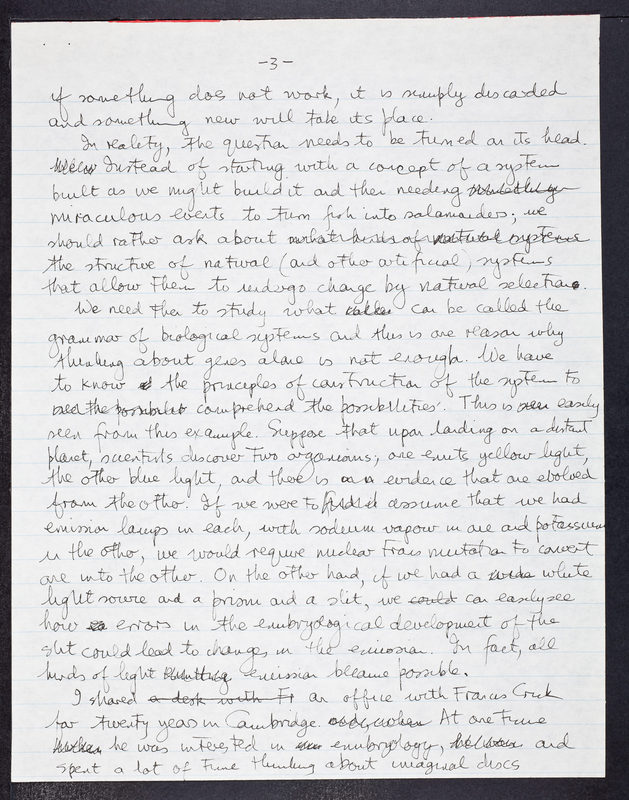 -3-
if something does not work, it is simply discarded
and something new will take its place.
In reality, the question needs to be turned on its head.
Instead of starting with a concept of a system
built as we might build it and then needing
miraculous events to turn fish into salamanders; we
should rather ask about what kinds of natural systems
the structure of natural (and other artificial), systems
that allow them to undergo change by natural selection.
We need then to study what can be called the
grammar of biological systems and this is one reason why
thinking about genes alone is not enough. We have
to know the principles of construction of the system to
see the possibilit comprehend the possibilities. This is seen easily
seen from this example. Suppose that upon landing on a distant
planet, scientists discover two organisms; one emits yellow light,
the other blue light, and there is evidence that one evolved
from the other. If we were to assume that we had
emission lamps in each, with sodium vapour in one and potassium
in the other, we would require nuclear transmutation to convert
one into the other. On the other hand, if we had a white
light source and a prism and a slit, we could can easily see
how errors in the embryological development of the
slit could lead to changes in the emission. In fact, all
kinds of light emission became possible.
I shared a desk with Fr an office with Francis Crick
for twenty years in Cambridge and, when At one time
he was interested in embryology, and
spent a lot of time thinking about imaginal discs